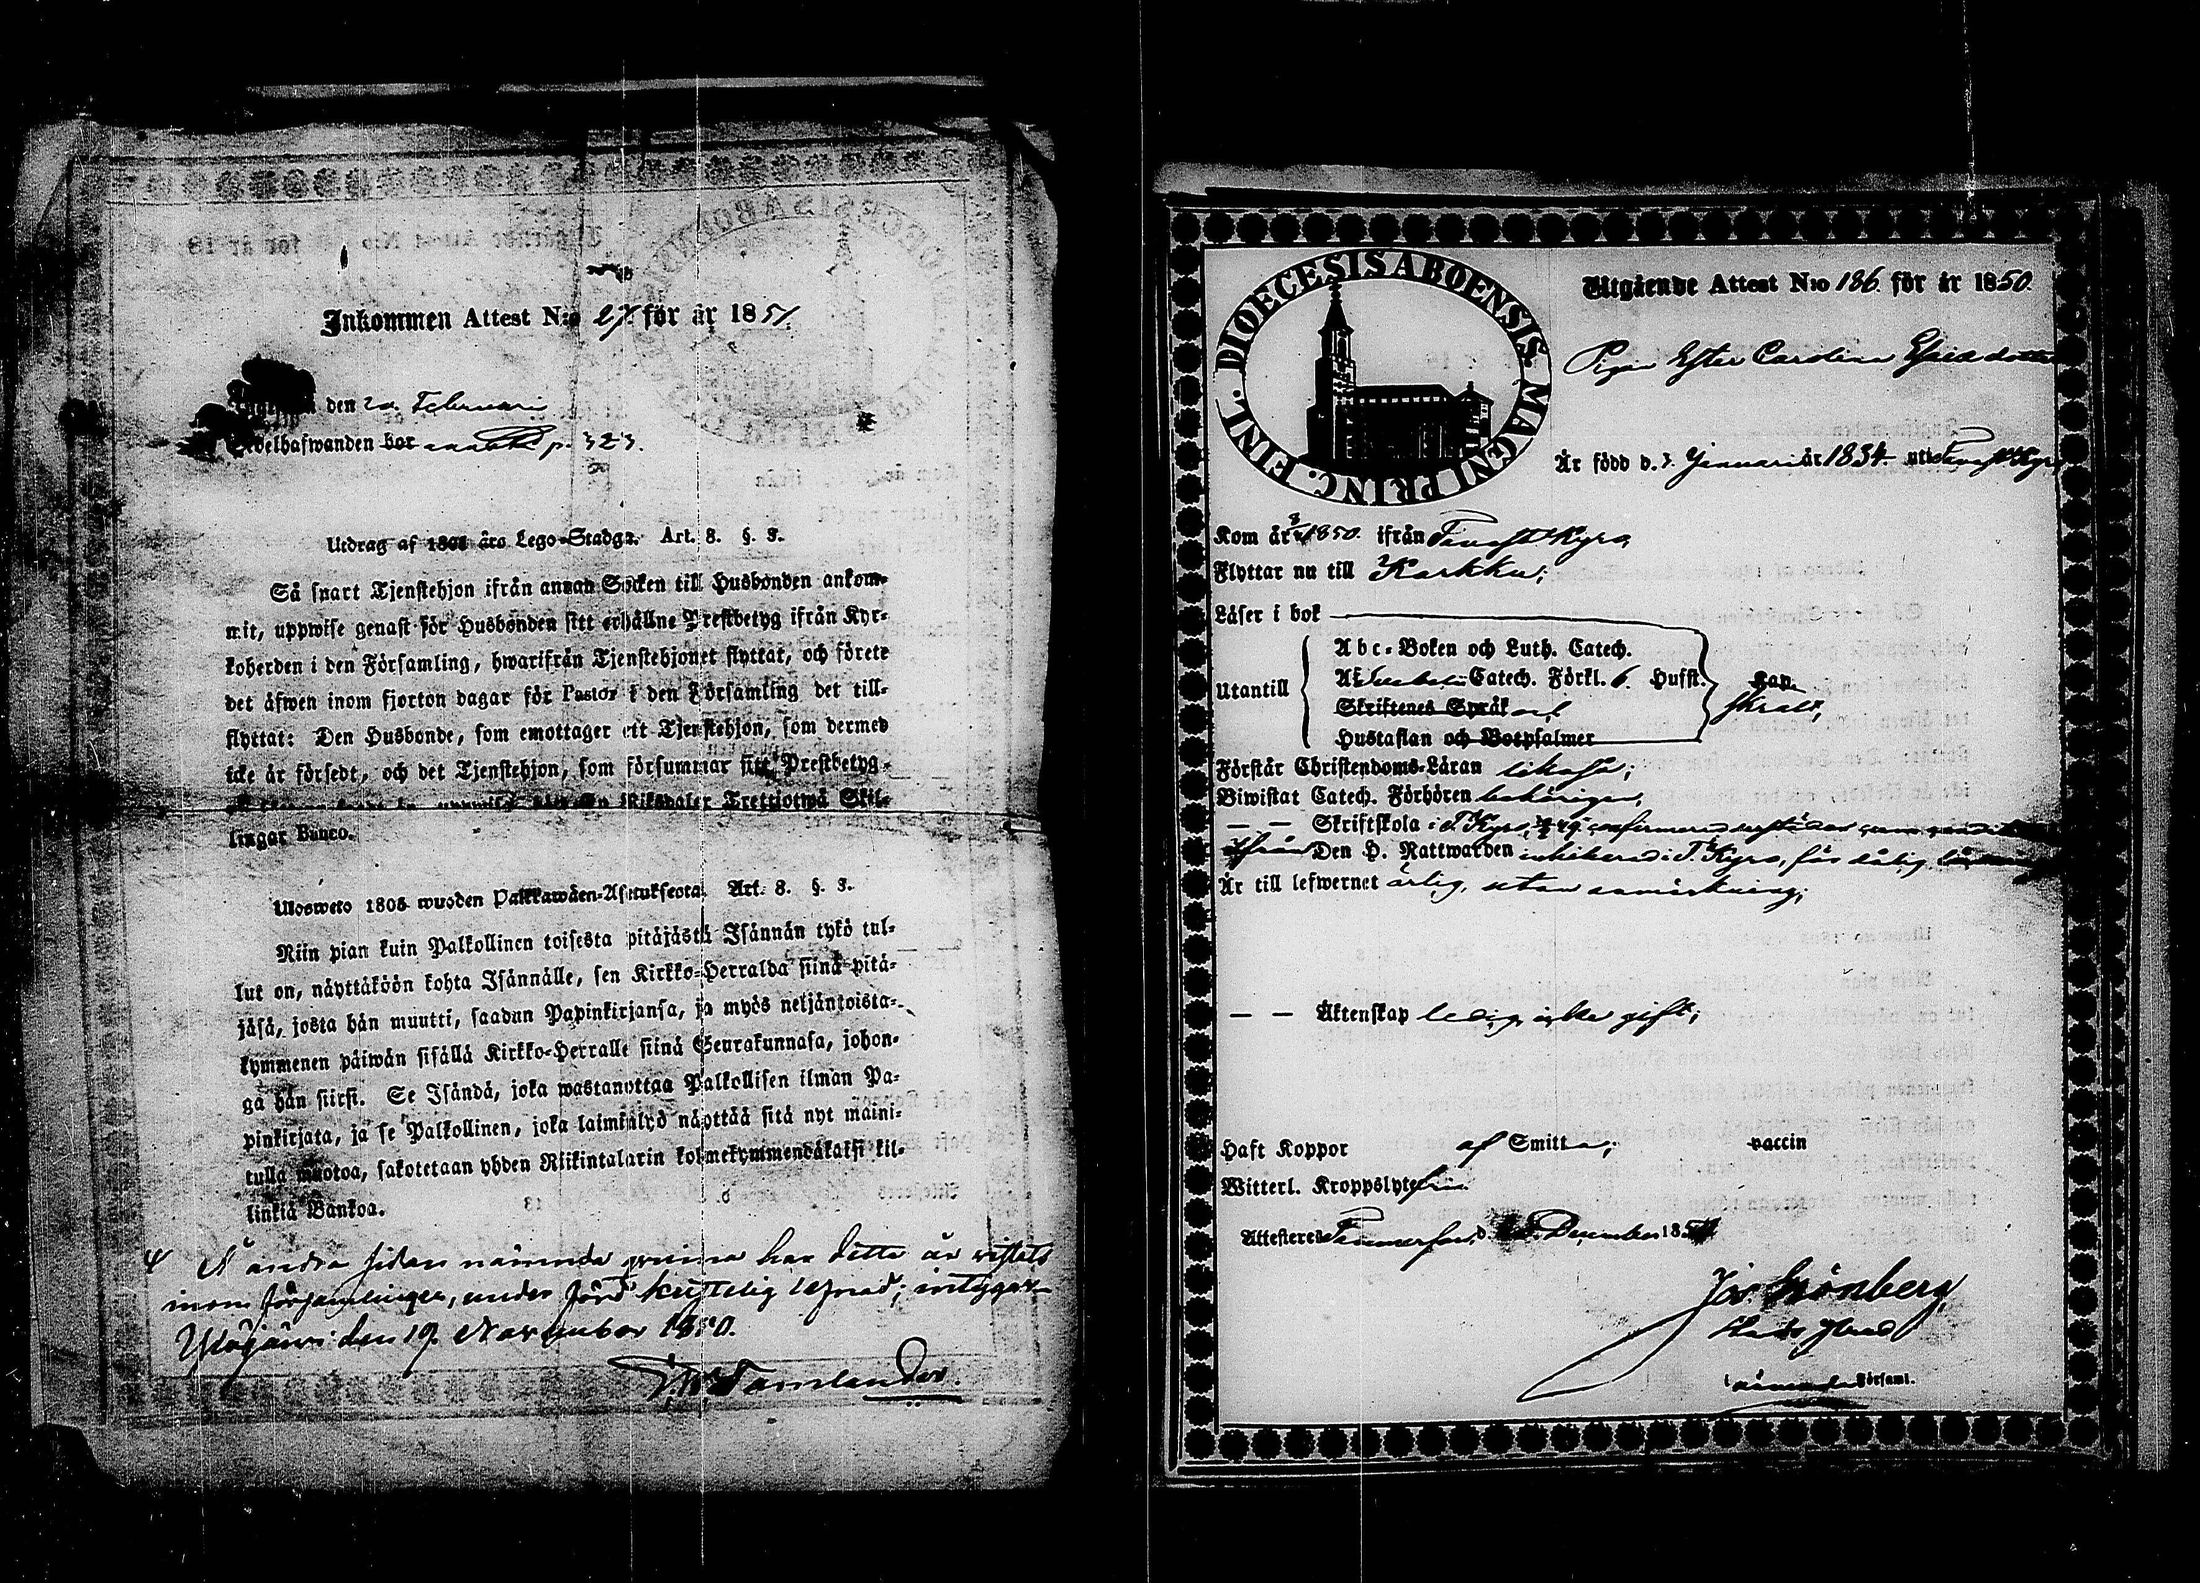 Inkommen Attest N:o 27 för år 1851.
den 20 Februari
Bedelhafwanden bor p. 323.
Utdrag af 1805 års Lego-Stadga. Art. 8. §. 3.
Så snart Tjenstehjon ifrån annan Socken till Husbonden ankom-
mit, uppwise genast för Husbonden sitt erhållne Prestbetyg ifrån Kyr-
koherden i den Församling, hwarifrån Tjenstehjonet flyttat, och förete
det äfwen inom fjorton dagar för Pastor i den Församling det till-
flyttat: Den Husbonde, som emottager ett Tjenstehjon, som dermed
icke är försedt, och det Tjenstehjon, som försummar sitt Prestbetyg
Riksdaler Trettiotwå Skil-
lingar Banco.
Ulosweto 1805 wuoden Palkkawäen-Asetuksesta. Art. 8. §. 3.
Niin pian kuin Palkollinen toisesta pitäjästä Isännän tykö tul-
lut on, näyttäköön kohta Isännälle, sen Kirkko-Herralda siinä pitä-
jäsä, josta hän muutti, saadun Papinkirjansa, ja myös neljäntoista-
kymmenen päiwän sisällä Kirkko-Herralle siinä Seurakunnasa, johon-
ga hän siirsi. Se Isändä, joka wastanottaa Palkollisen ilman Pa-
pinkirjata, ja se Palkollinen, joka laiminlyö näyttää sitä nyt maini-
tulla muotoa, sakotetaan yhden Riikintalarin kolmekymmendäkaksi kil-
linkiä Bankoa.
Å andra sidan nämnda qvinna har detta år vistats
inom församlingen, under förd kristelig lefnad; intygar
Ylöjärvi den 19 November 1850.
Tamlander.
DIOECESIS ABOENSIS MAGNI PRINC. FINL.
Utgående Attest N:o 186. för år 1850.
Pigan Ester Carolina Esaiædotter
Är född d. 3. Januari år 1834. uti Tavastkyro
Kom år 1850. ifrån Tavastkyro,
Flyttar nu till Karkku;
Läser i bok
Utantill
Abc-Boken och Luth. Catech.
Catech. Förkl. 6. Hufst.
Skriftenes Språk och
Hustaflan och Botpsalmer
svagt,
Förstår Christendoms-Läran likaså;
Biwistat Catech. Förhören behörigen,
— — Skriftskola i T.Kyro,
Den H. Nattwarden i T.Kyro, för dålig
Är till lefwernet ärlig, utan anmärkning;
— — Äktenskap ledig, icke gift;
Haft Koppor af Smitta; vaccin
Witterl. Kroppslyte fri.
Attesterar Tammerfors, d. December 1850
Joh. Grönberg,
i nämnde Församl.